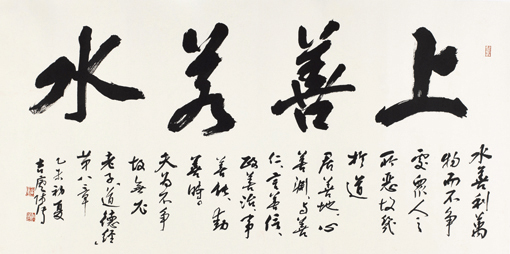 上善若水
水善利萬
物而不争
處衆人之
所惡故幾
於道
居善地心
善渊与善
仁言善信
政善治事
善能動
善時
夫為不争
故无尤
老子道德经
第八章
乙未初夏